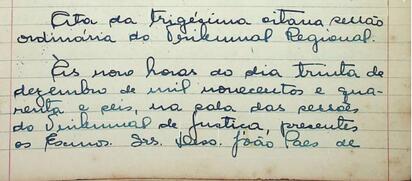 Ata da trigézima oitava sessão
ordinária do Tribunal Regional.
Às nove horas do dia trinta de
dezembro de mil novecentos e qua-
renta e seis, na sala das sessões
do Tribunal de Justiça, presentes
os Exmos. Srs. Des. João Paes de